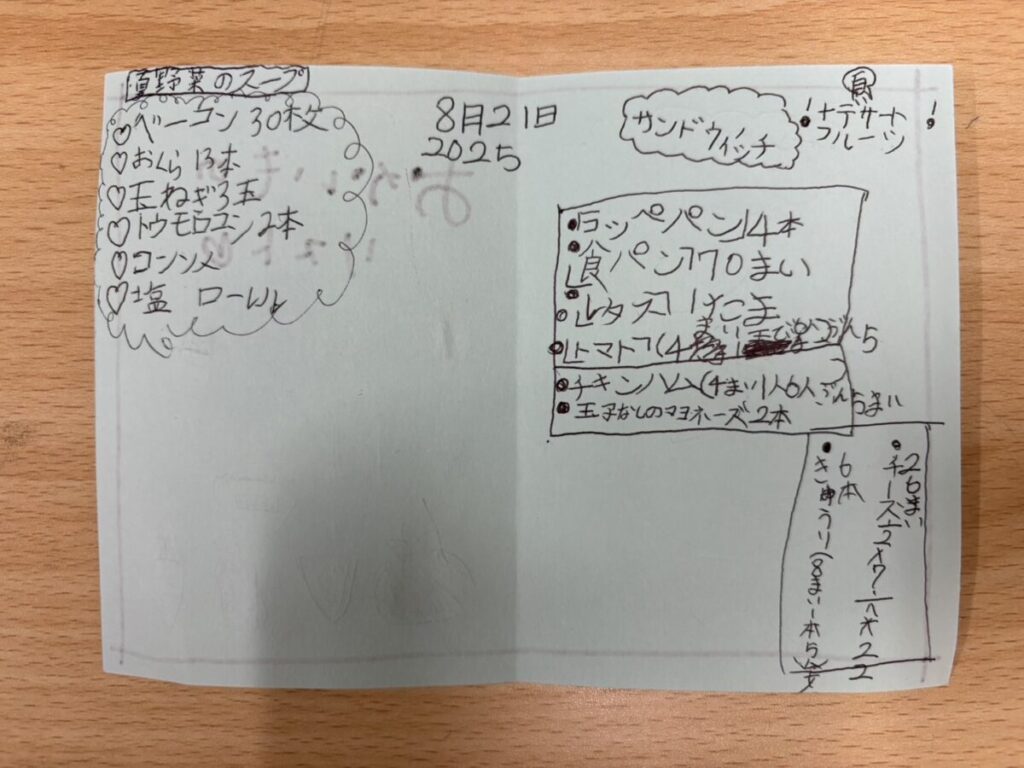 夏野菜のスープ
♡ベーコン 30枚
♡おくら 13本
♡玉ねぎ3玉
♡トウモロコシ 2本
♡コンソメ
♡塩
8月21日
2025
サンドウィッチ
デザート
フルーツ
・コッペパン14本
・食パン170まい
・レタス
・トマト(4
5
・チキンハム(4まい1人6人ぶん5まい
・玉子なしのマヨネーズ 2本
26まい
・チーズ
6本
・きゅうり(8まい1本5
おかいもの
リスト